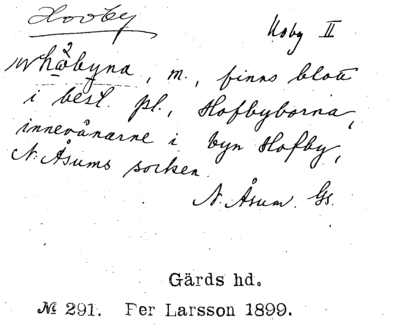 Hovby
Hoby II
håbyna, m., finns blott
i best. pl., Hofbyborna,
innevånarne i byn Hofby,
N. Åsums socken.
N. Åsum. Gs.
Gärds hd.
№ 291. Per Larsson 1899.